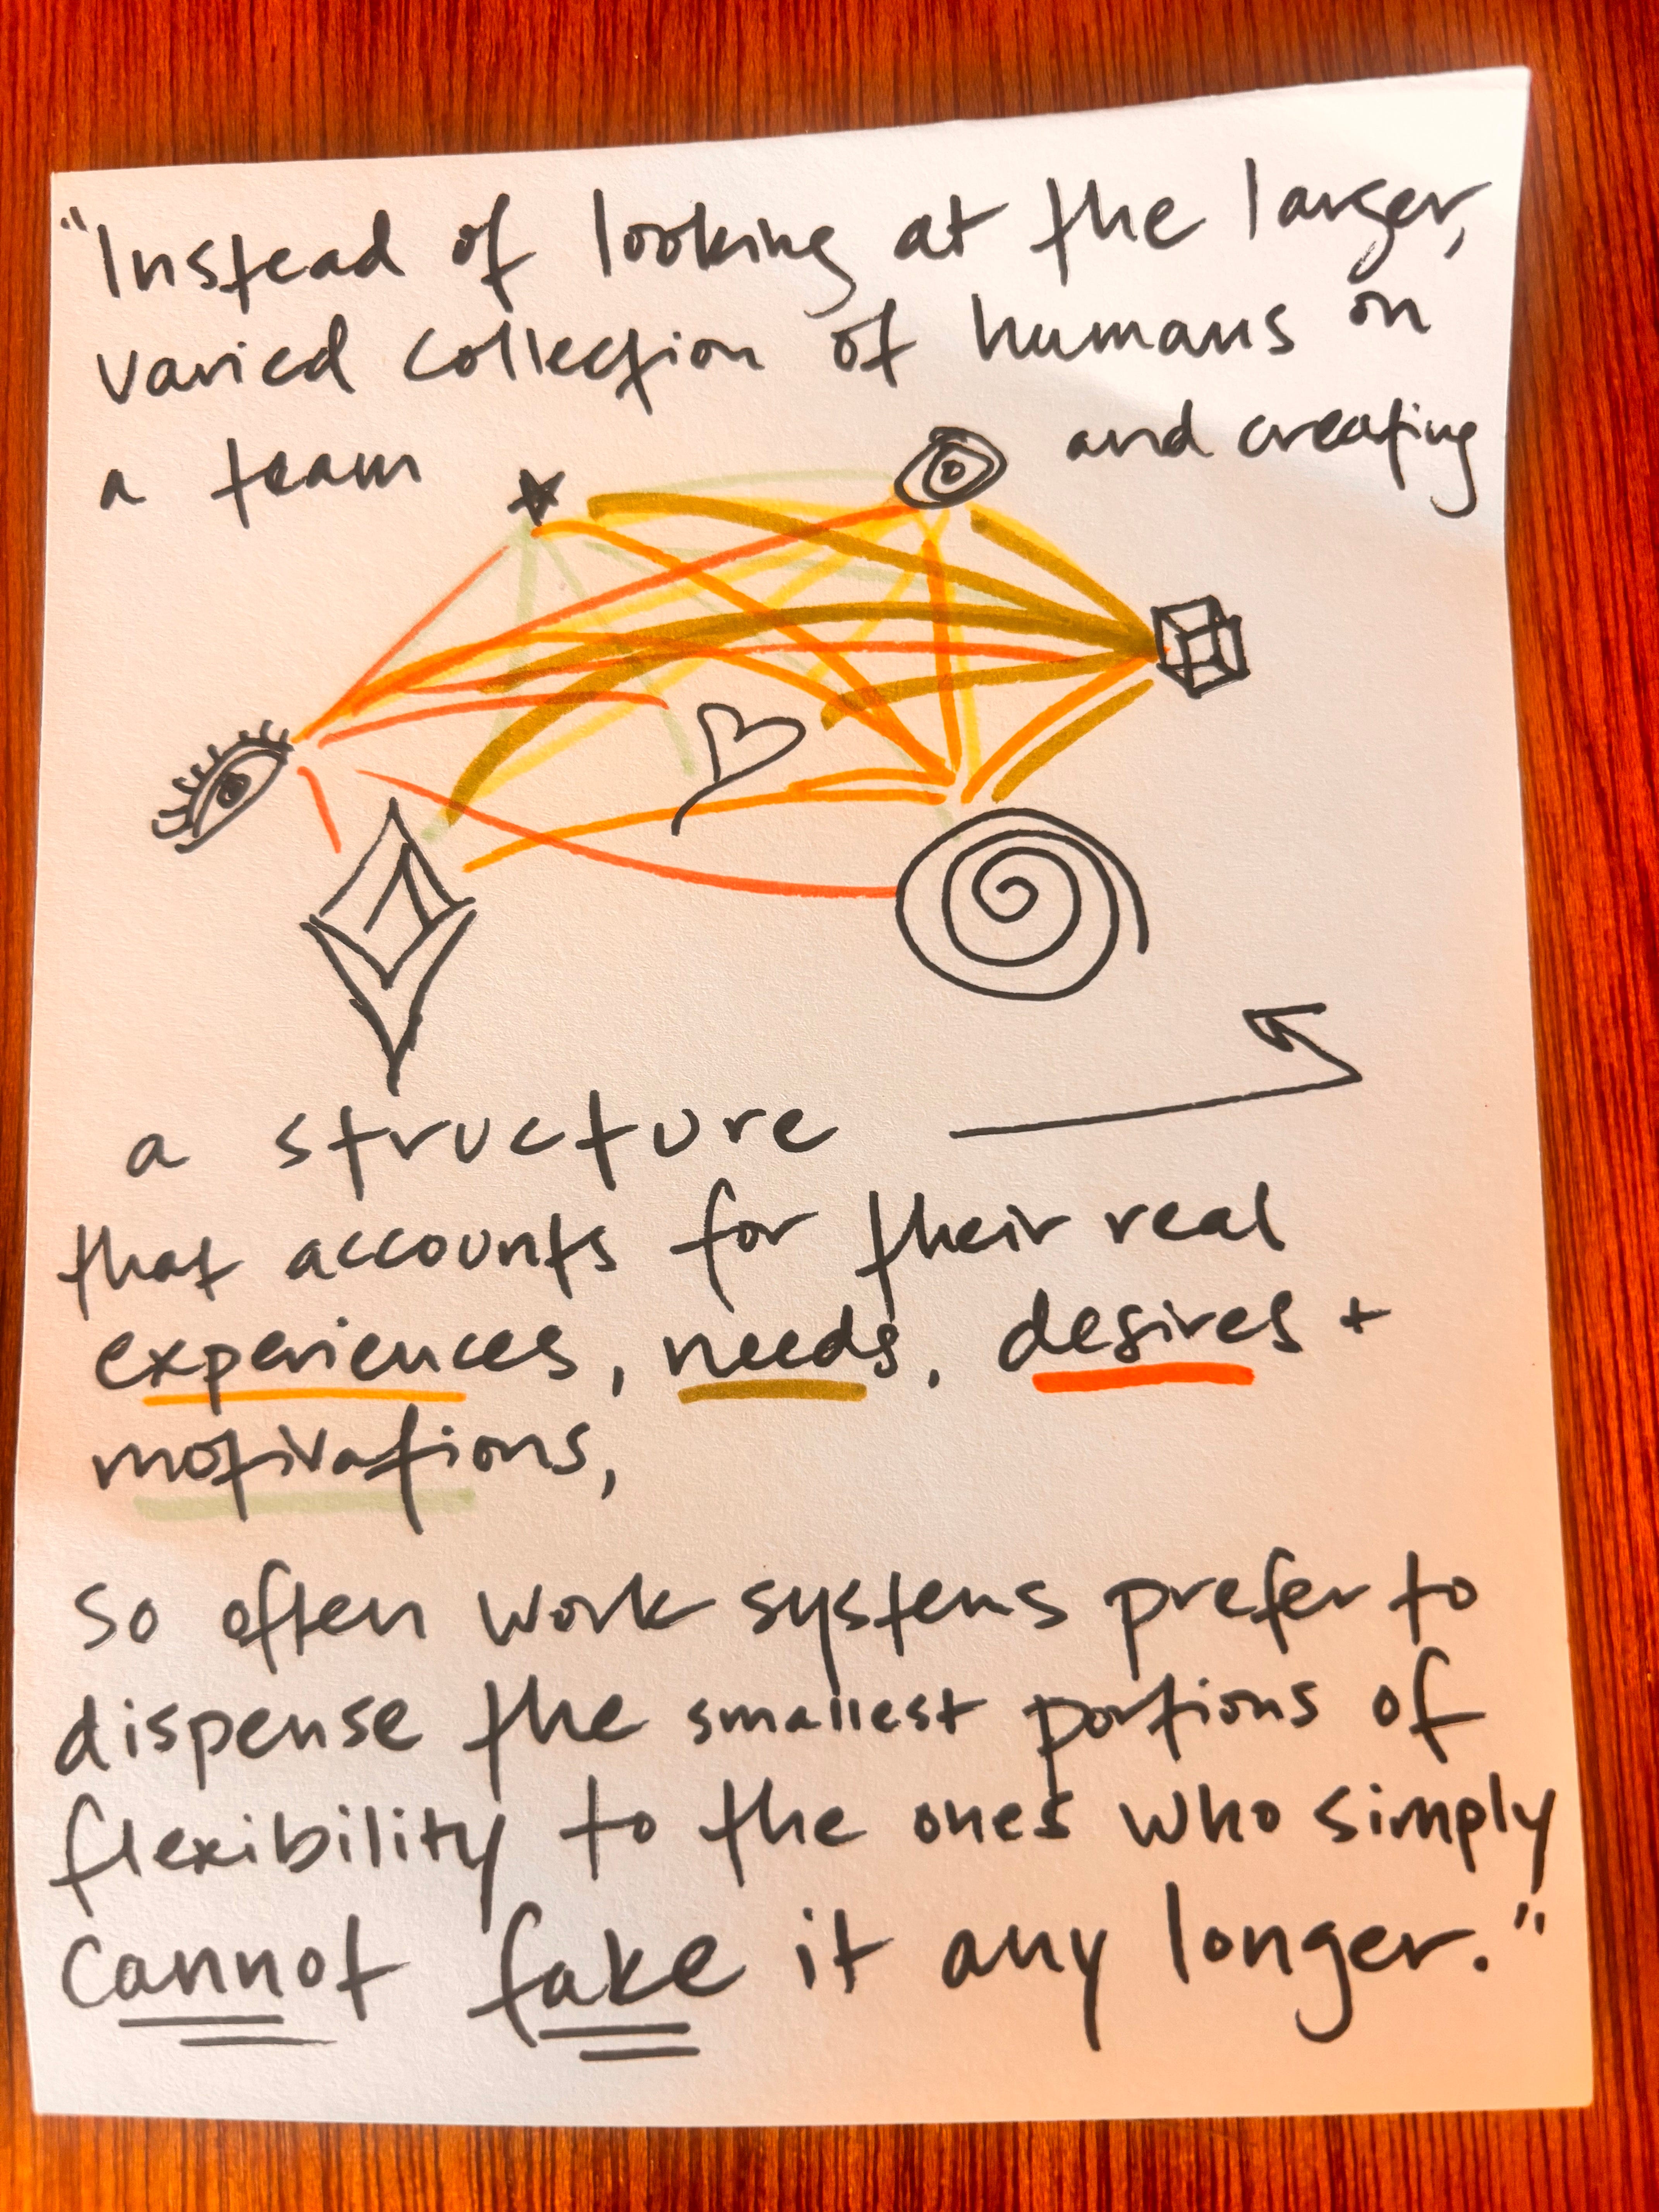 "Instead of looking at the larger,
varied collection of humans on
a team and creating
a structure
that accounts for their real
experiences, needs, desires +
motivations,
So often work systems prefer to
dispense the smallest portions of
flexibility to the ones who simply
cannot fake it any longer."